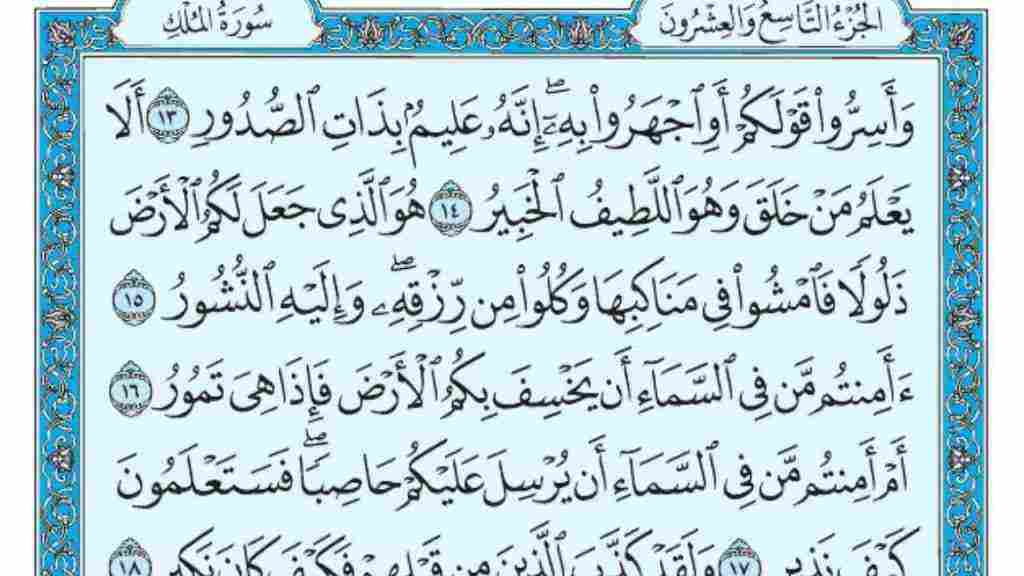 الجُزْءُ التَّاسِعُ وَالعِشْرُونَ
سُورَةُ المُلْكِ
وَأَسِرُّوا۟ قَوْلَكُمْ أَوِ ٱجْهَرُوا۟ بِهِۦٓۖ إِنَّهُۥ عَلِيمٌۢ بِذَاتِ ٱلصُّدُورِ ١٣ أَلَا
يَعْلَمُ مَنْ خَلَقَ وَهُوَ ٱللَّطِيفُ ٱلْخَبِيرُ ١٤ هُوَ ٱلَّذِى جَعَلَ لَكُمُ ٱلْأَرْضَ
ذَلُولًا فَٱمْشُوا۟ فِى مَنَاكِبِهَا وَكُلُوا۟ مِن رِّزْقِهِۦۖ وَإِلَيْهِ ٱلنُّشُورُ ١٥
ءَأَمِنتُم مَّن فِى ٱلسَّمَآءِ أَن يَخْسِفَ بِكُمُ ٱلْأَرْضَ فَإِذَا هِىَ تَمُورُ ١٦
أَمْ أَمِنتُم مَّن فِى ٱلسَّمَآءِ أَن يُرْسِلَ عَلَيْكُمْ حَاصِبًاۖ فَسَتَعْلَمُونَ
كَيْفَ نَذِيرِ ١٧ وَلَقَدْ كَذَّبَ ٱلَّذِينَ مِن قَبْلِهِمْ فَكَيْفَ كَانَ نَكِيرِ ١٨